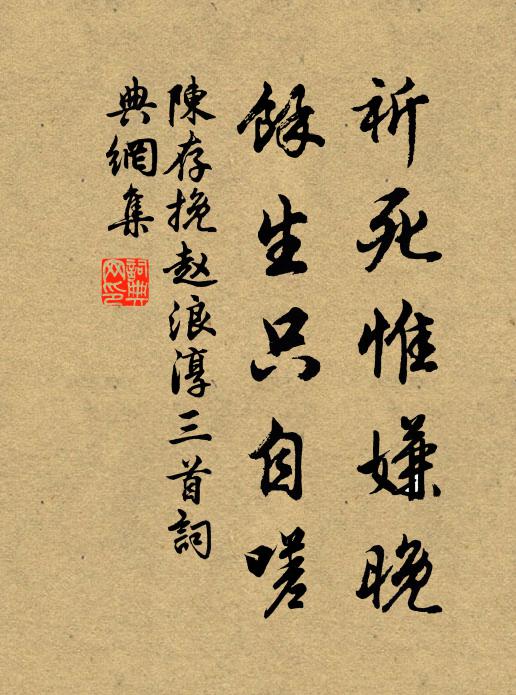 祈死惟嫌晚
餘生只自嗟
陳存挽赵浪淳三首詞
典網集
詞典網印